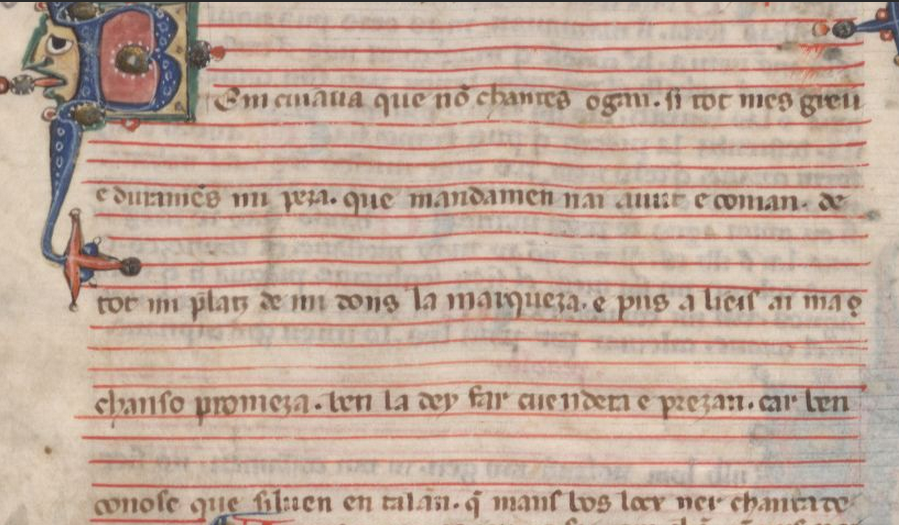 Em cuiaua que nõ chantes ogan. si tot mes greu
e durames mi peza. que mandamen nai auut e coman. de
tot mi platz de mi dons la marqueza. e pus a lieis ai ma
chanso promeza. ben la dey far cuendeta e prezan. car ben
conosc que siluen en talan. q̃ mans bos locx ner chantad